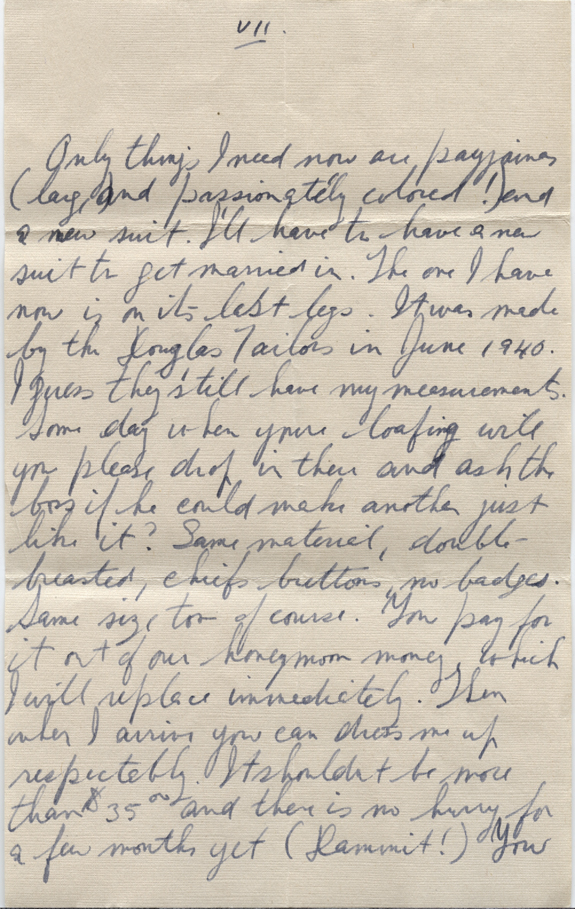 VII.
Only things I need now are payjamas
(large, and passionately colored!) and
a new suit. I'll have to have a new
suit to get married in. The one I have
now is on its last legs. It was made
by the Douglas Tailors in June 1940.
I guess they still have my measurements.
Some day when you're loafing will
you please drop in there and ask the
boss if he could make another just
like it? Same material, double-
breasted, chiefs buttons, no badges.
Same size too of course. You pay for
it out of our honeymoon money, which
I will replace immediately. Then
when I arrive you can dress me up
respectably. It shouldn't be more
than $35 00 and there is no hurry for
a few months yet (Dammit!) Your